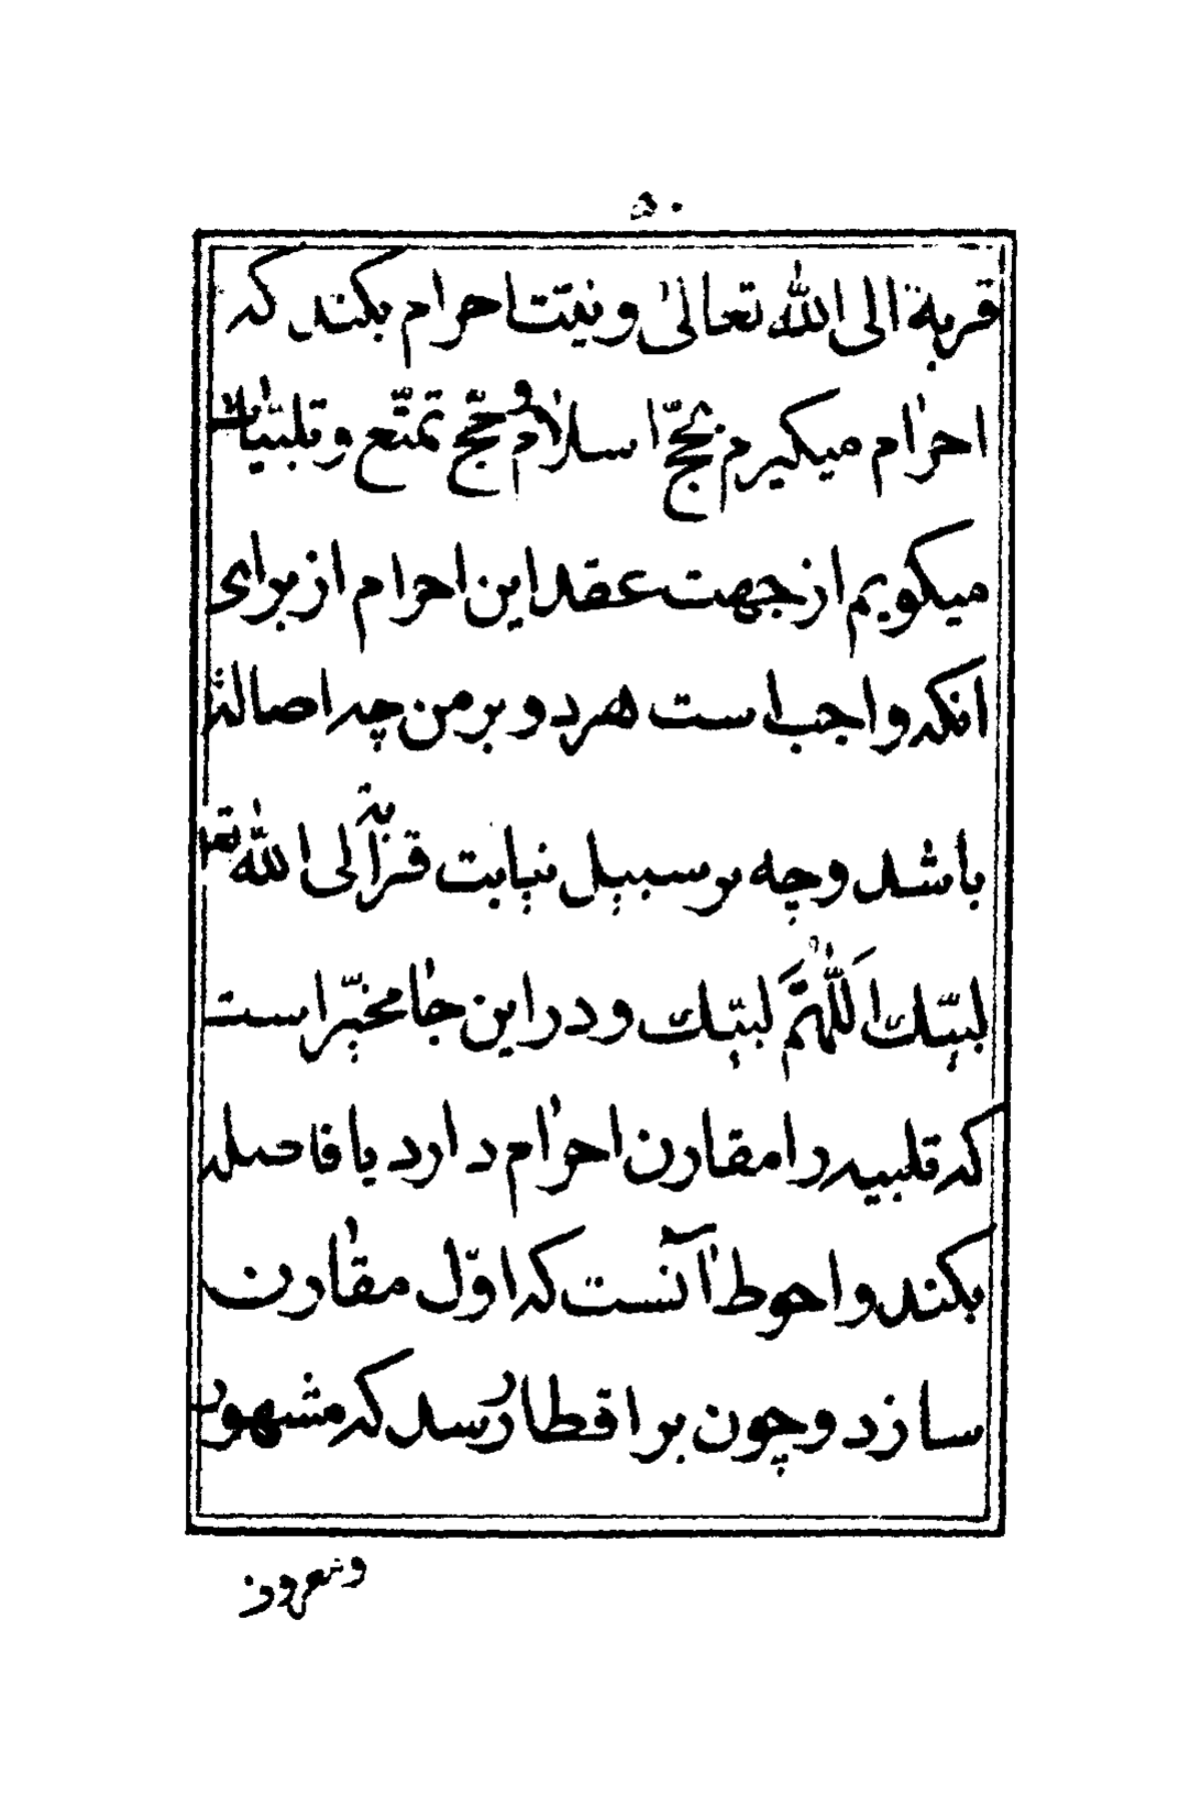 ۵۰
قربة الى الله تعالىٰ و نیّت احرام بکند که
احرام میکیرم بحجّ اسلام و حجّ تمتّع و تلبیّات
میکویم از جهت عقد این احرام از برای
انکه واجب است هر دو بر من چه اصالة
باشد و چه بر سبیل نیابت قربة الى الله تعـ
لبیّك اَللّٰهُمَّ لبیّك و در این جا مخیّر است
که تلبیه را مقارن احرام دارد یا فاصله
بکند و احوط آنست که اوّل مقارن
سازد و چون بر اقطار رسد که مشهور
و معروف